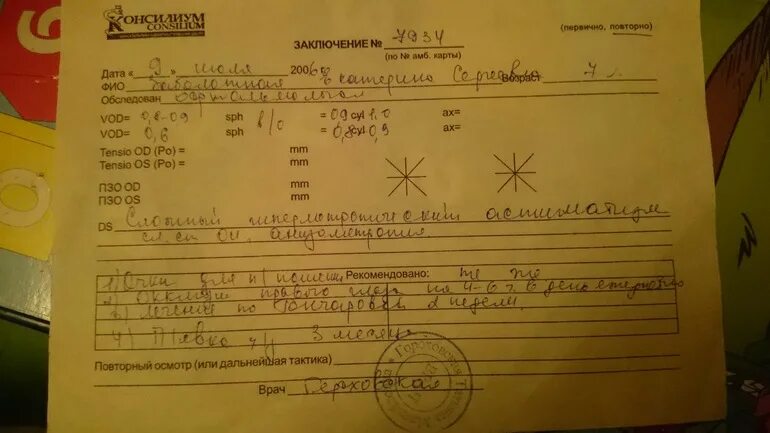 КОНСИЛИУМ
CONSILIUM
(первично, повторно)
ЗАКЛЮЧЕНИЕ № 7934
(по № амб. карты)
Дата « 9 » июля 2006
ФИО Екатерина Сергеевна Возраст 7 л.
Обследован
VOD= 0,8-09 sph в/о = 09 cyl 1.0 ax=
VOD= 0,6 sph = 0,8 cyl 0,9 ax=
Tensio OD (Po) = mm
Tensio OS (Po) = mm
ПЗО OD mm
ПЗО OS mm
DS Сложный гиперметропический астигматизм
анизометропия
1) Очки для Рекомендовано: те же
2) Окклюзия правого глаза на 4-6 в день ежедневно
3) Лечение по 2 недели.
4) Явка ч/з 3 месяца
Повторный осмотр (или дальнейшая тактика)
Врач